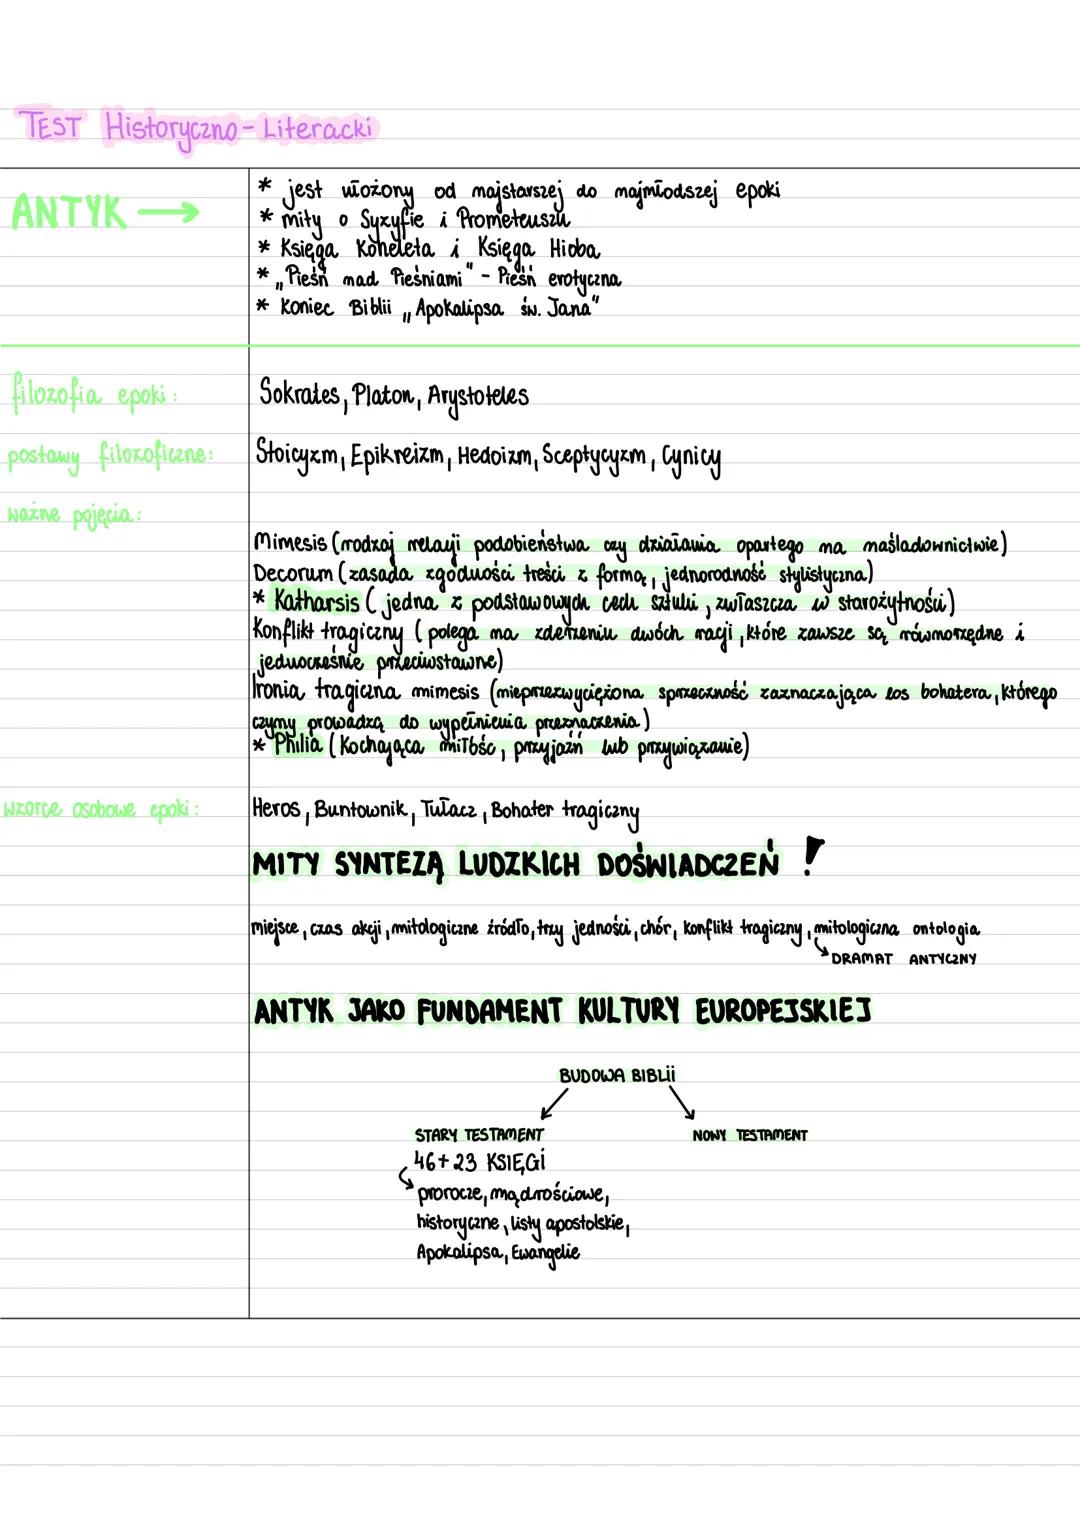 TEST Historyczno-Literacki
ANTYK →
* jest ułożony od najstarszej do najmłodszej epoki
* mity o Syzyfie i Prometeuszu
* Księga Koheleta i Księga Hioba
* „Pieśń nad Pieśniami" - Pieśń erotyczna
* Koniec Biblii „Apokalipsa św. Jana"
filozofia epoki:
Sokrates, Platon, Arystoteles
postawy filozoficzne:
Stoicyzm, Epikreizm, Hedoizm, Sceptycyzm, Cynicy
ważne pojęcia:
Mimesis (rodzaj relacji podobieństwa czy działania opartego na naśladownictwie)
Decorum (zasada zgodności treści z formą, jednorodność stylistyczna)
* Katharsis (jedna z podstawowych cech sztuki, zwłaszcza w starożytności)
Konflikt tragiczny (polega na zderzeniu dwóch racji, które zawsze są równorzędne i
jednocześnie przeciwstawne)
Ironia tragiczna mimesis (nieprzezwyciężona sprzeczność zaznaczająca los bohatera, którego
czyny prowadzą do wypełnienia przeznaczenia)
* Philia (Kochająca miłość, przyjaźń lub przywiązanie)
wzorce osobowe epoki:
Heros, Buntownik, Tułacz, Bohater tragiczny
MITY SYNTEZĄ LUDZKICH DOŚWIADCZEŃ !
miejsce, czas akcji, mitologiczne źródło, trzy jedności, chór, konflikt tragiczny, mitologiczna ontologia
DRAMAT ANTYCZNY
ANTYK JAKO FUNDAMENT KULTURY EUROPEJSKIEJ
BUDOWA BIBLii
STARY TESTAMENT
NOWY TESTAMENT
46+23 KSIĘGi
prorocze, mądrościowe,
historyczne, listy apostolskie,
Apokalipsa, Ewangelie